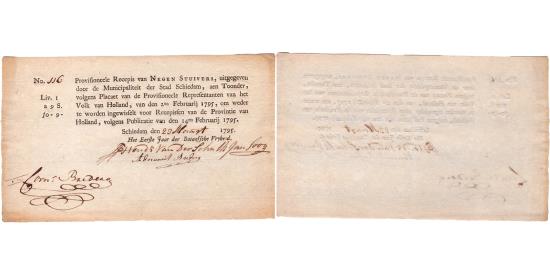 No. 116
Liv. 1
a 9 S.
f0-9-
Provisioneele Recepis van NEGEN STUIVERS, uitgegeven
door de Municipaliteit der Stad Schiedam, aen Toonder,
volgens Placaet van de Provisioneele Representanten van het
Volk van Holland, van den 2den Februarij 1795, om weder
te worden ingewisselt voor Recepissen van de Provintie van
Holland, volgens Publicatie van den 14den Februarij 1795.
Schiedam den 23 Maart 1795.
Het Eerste Jaar der Bataafsche Vryheid.
Van Der